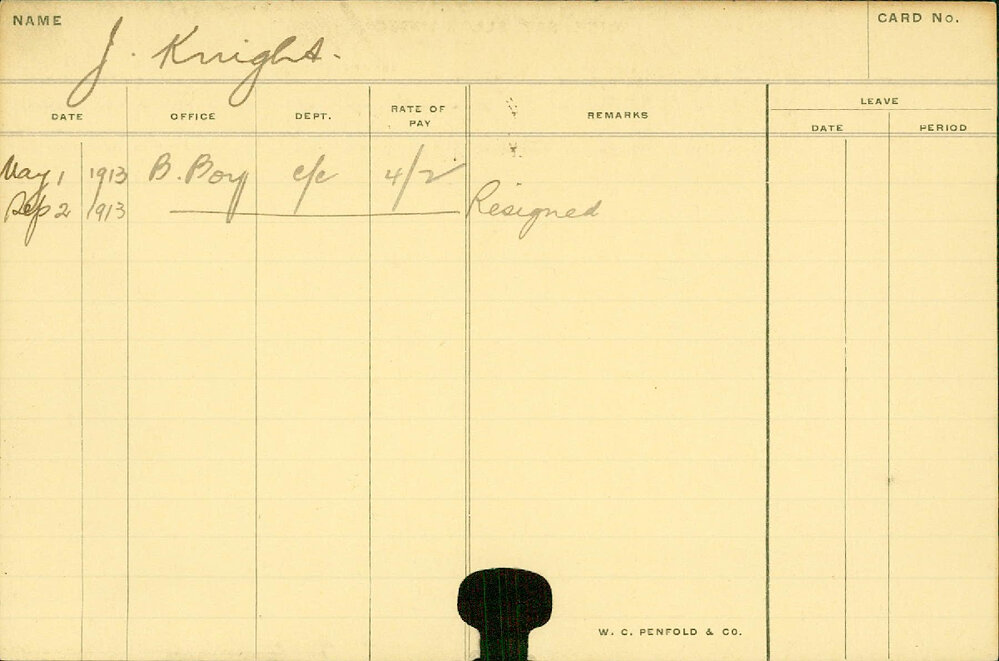 NAME J. Knight. CARD No.
DATE OFFICE DEPT. RATE OF PAY REMARKS LEAVE
DATE PERIOD
May 1 1913 B. Boy c/c 4/2
Sep 2 1913 Resigned
W. C. PENFOLD & CO.